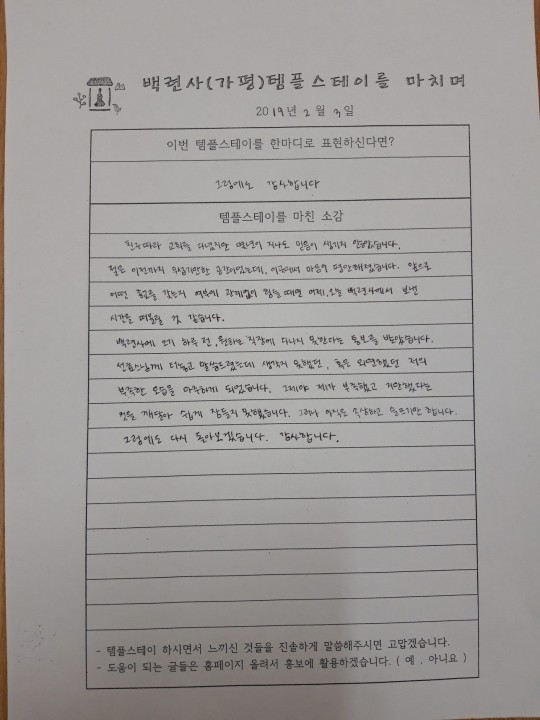 백련사(가평)템플스테이를 마치며
2019년 2월 3일
이번 템플스테이를 한마디로 표현하신다면?
그럼에도 감사합니다
템플스테이를 마친 소감
친구따라 교회를 다녔지만 몇년이 지나도 믿음이 생기지 않았습니다.
절은 이전까지 무섭기만한 공간이었는데, 이곳에서 마음이 평안해졌습니다. 앞으로
어떤 종교를 갖는지 여부에 관계없이 힘들 때면 어제,오늘 백련사에서 보낸
시간을 떠올릴 것 같습니다.
백련사에 오기 하루 전, 원하는 직장에 다니지 못한다는 통보를 받았습니다.
선홉스님께 터놓고 말씀드렸는데 생각지 못했던, 혹은 외면했던 저의
부족한 모습을 마주하게 되었습니다. 그제야 제가 부족했고 거만했다는
것을 깨달아 쉽게 잠들지 못했습니다. 그러나 아직은 속상하고 슬프기만 합니다.
그럼에도 다시 돌아보겠습니다. 감사합니다.
- 템플스테이 하시면서 느끼신 것들을 진솔하게 말씀해주시면 고맙겠습니다.
- 도움이 되는 글들은 홈페이지 올려서 홍보에 활용하겠습니다. ( 예 , 아니요 )